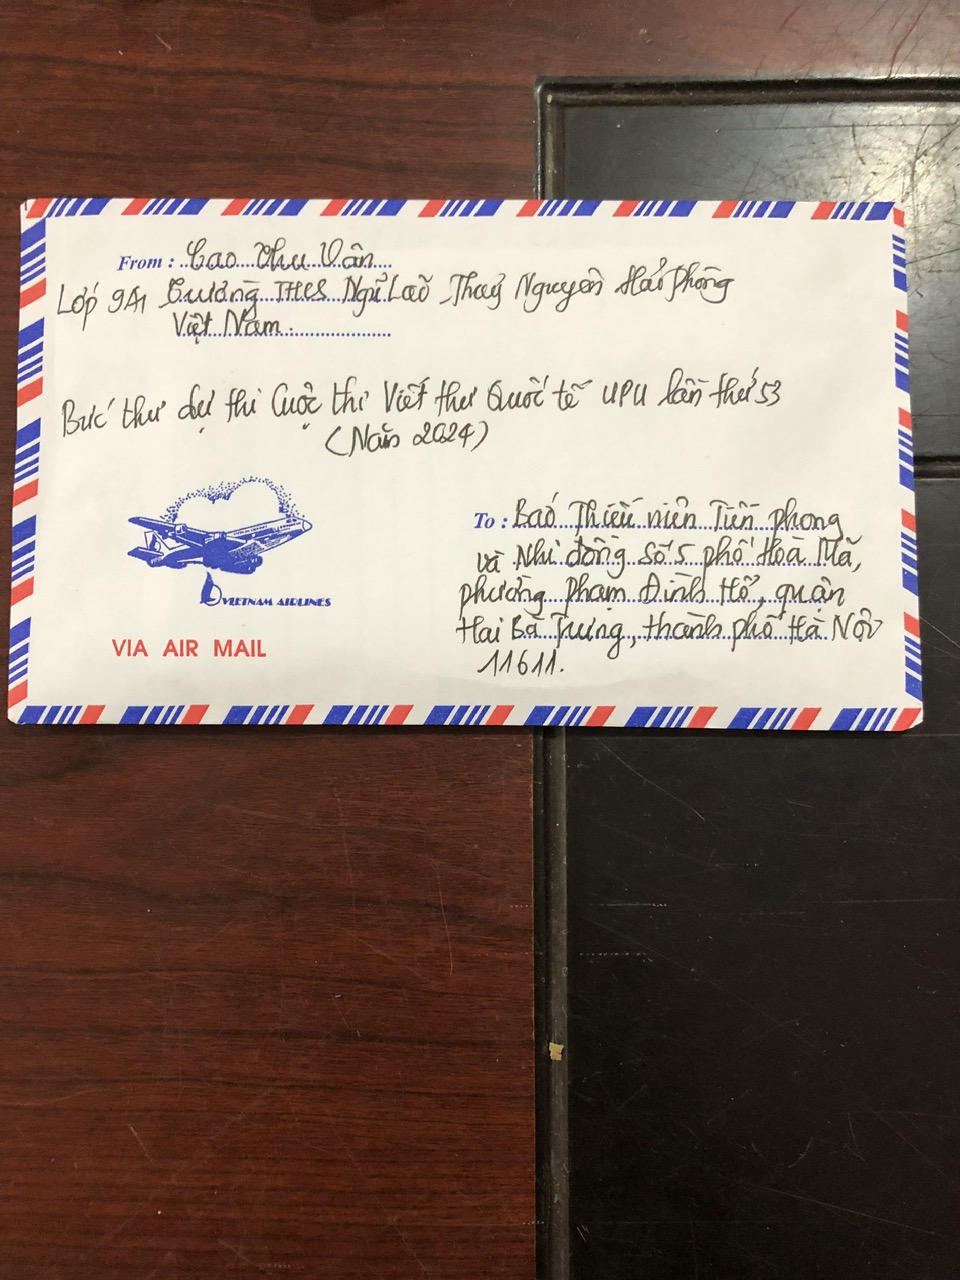 From : Cao Thu Vân
Lớp 9A1 Trường THCS Ngũ Lão Thuỷ Nguyên Hải Phòng
Việt Nam.
Bức thư dự thi Cuộc thi Viết thư Quốc tế UPU lần thứ 53
(Năm 2024)
To : Báo Thiếu niên Tiền phong
và Nhi đồng Số 5 phố Hoà Mã,
phường Phạm Đình Hổ, quận
Hai Bà Trưng, thành phố Hà Nội
11611.
VIETNAM AIRLINES
VIA AIR MAIL